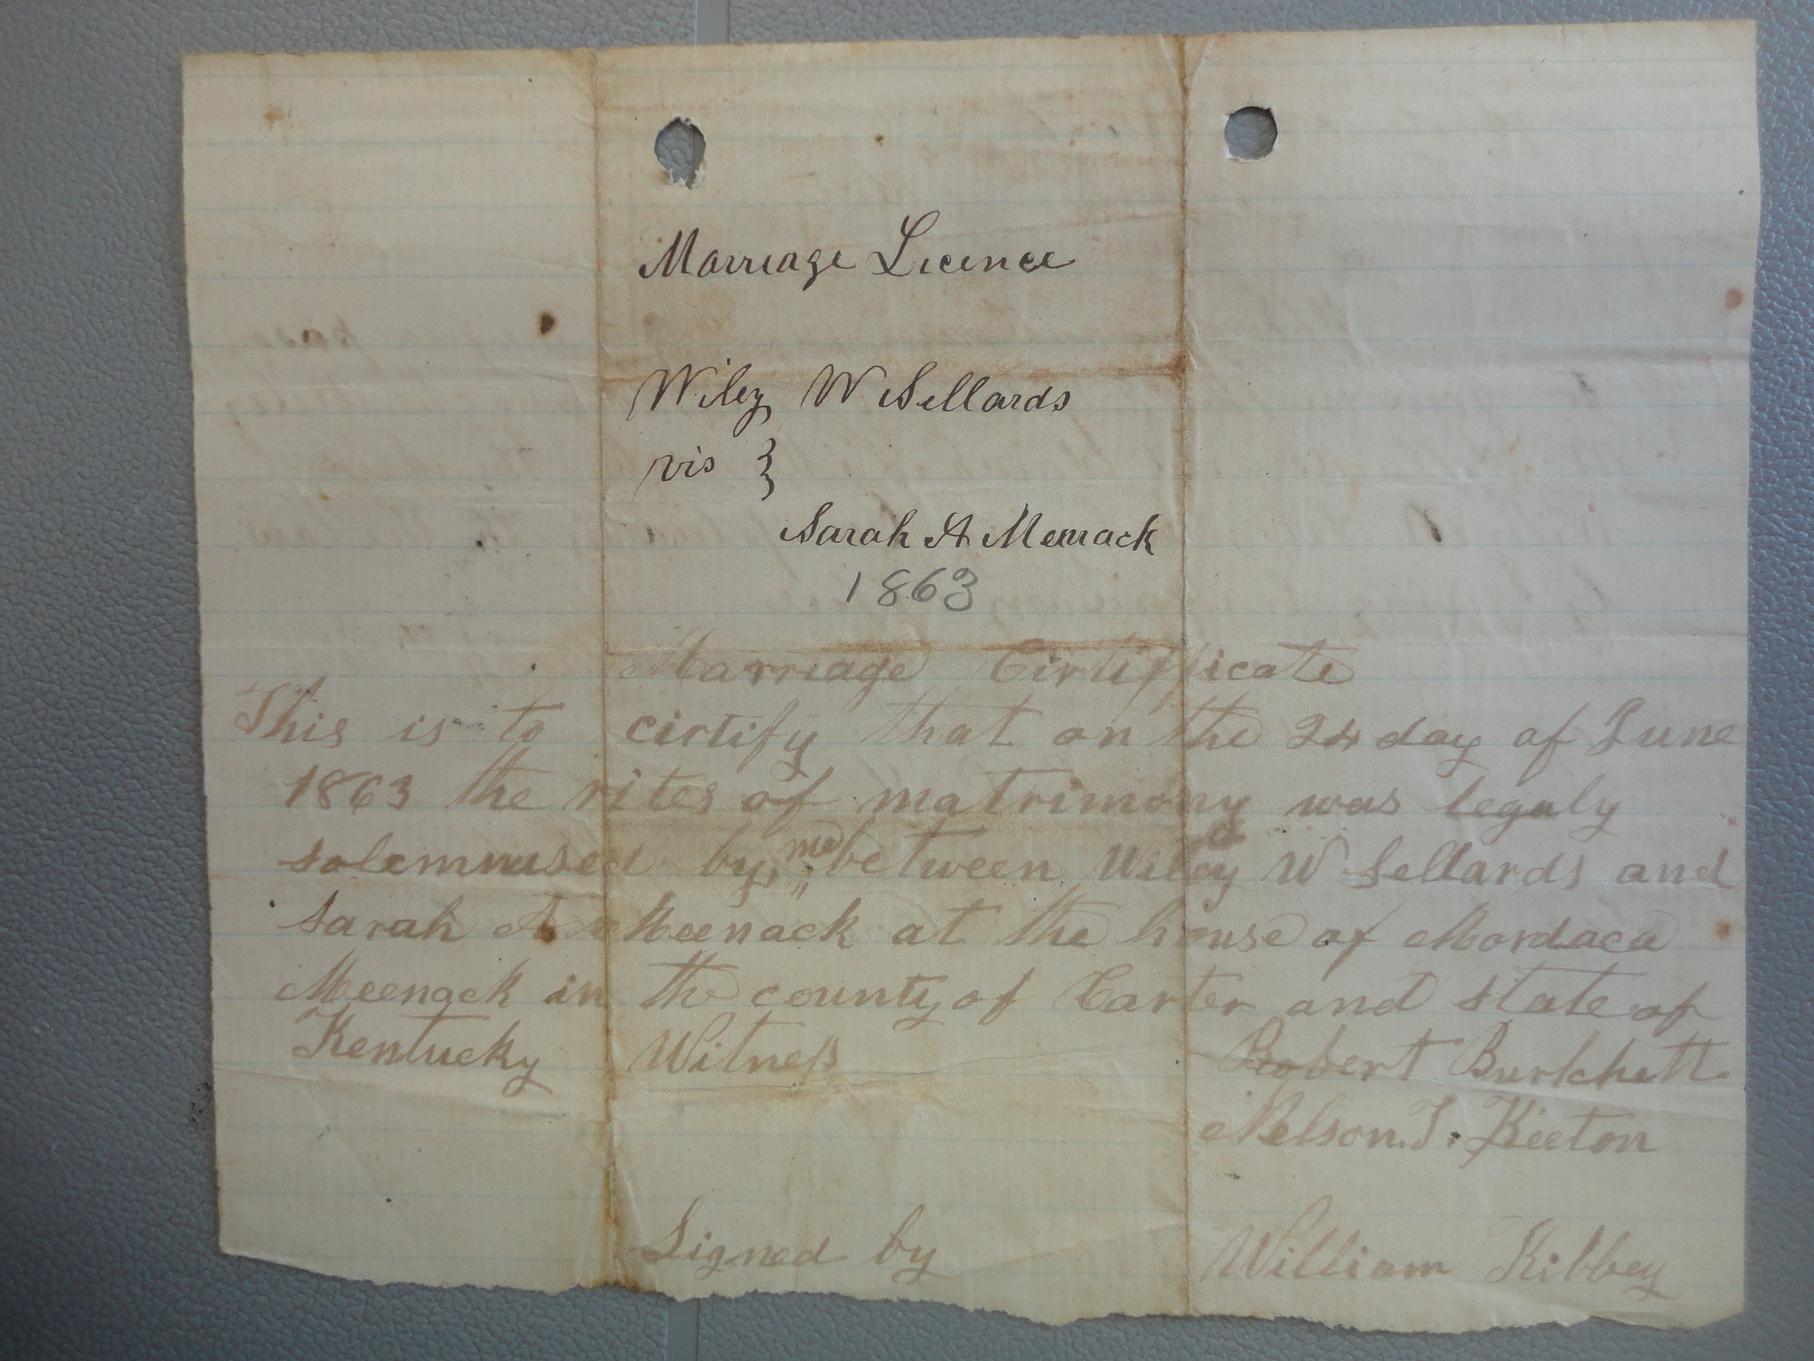 Marriage Licence
Wiley W Sellards
vis }
Sarah A Meenack
1863
Marriage Cirtifficate
This is to cirtify that on the 24 day of June
1863 the rites of matrimony was legaly
solemnised by, me between Wiley W Sellards and
Sarah A Meenack at the house of Mordaca
Meenack in the county of Carter and state of
Kentucky Witness Robert Burkchett.
Nelson. T. Keeton
Signed by William Kibbey